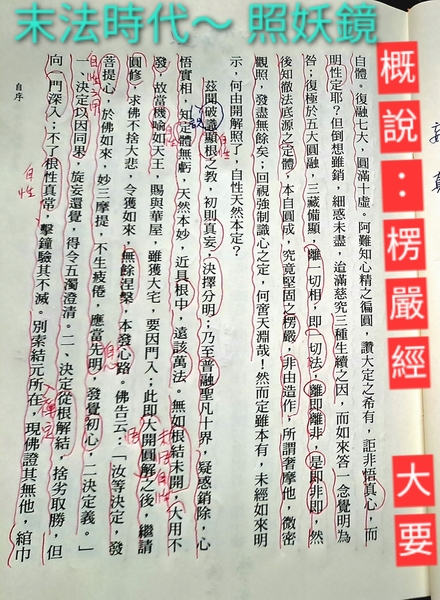 末法時代～ 照妖鏡
概說：楞嚴經 大要
自體。復融七大，圓滿十虛。阿難知心精之徧圓，讚大定之希有，詎非悟真心，而
明性定耶？但倒想雖銷，細惑未盡，迨滿慈究三種生續之因，而如來答一念覺明為
咎；復極於五大圓融，三藏備顯，離一切相，即一切法，離即離非，是即非即，然
後知徹法底源之定體，本自圓成，究竟堅固之楞嚴，非由造作，所謂奢摩他，微密
觀照，發盡無餘矣；回視強制識心之定，何啻天淵哉！然而定雖本有，未經如來明
示，何由開解照了，自性天然本定？
茲開破識顯根之教，初則真妄，決擇分明；乃至普融聖凡十界，疑惑銷除，心
悟實相，知定體無虧，天然本妙，近具根中，遠該萬法。無如根結未開，大用不
發，故當機喻如天王，賜與華屋，雖獲大宅，要因門入；此即大開圓解之後，繼請
圓修，求佛不捨大悲，令獲如來，無餘涅槃，本發心路。佛告云：「汝等決定，發
菩提心，於佛如來，妙三摩提，不生疲倦，應當先明，發覺初心，二決定義。」
一、決定以因同果，旋妄還覺，得令五濁澄清。二、決定從根解結，捨劣取勝，但
向一門深入；不了根性真常，擊鐘驗其不滅。別索結元所在，現佛證其無他，綰巾
自序
自性